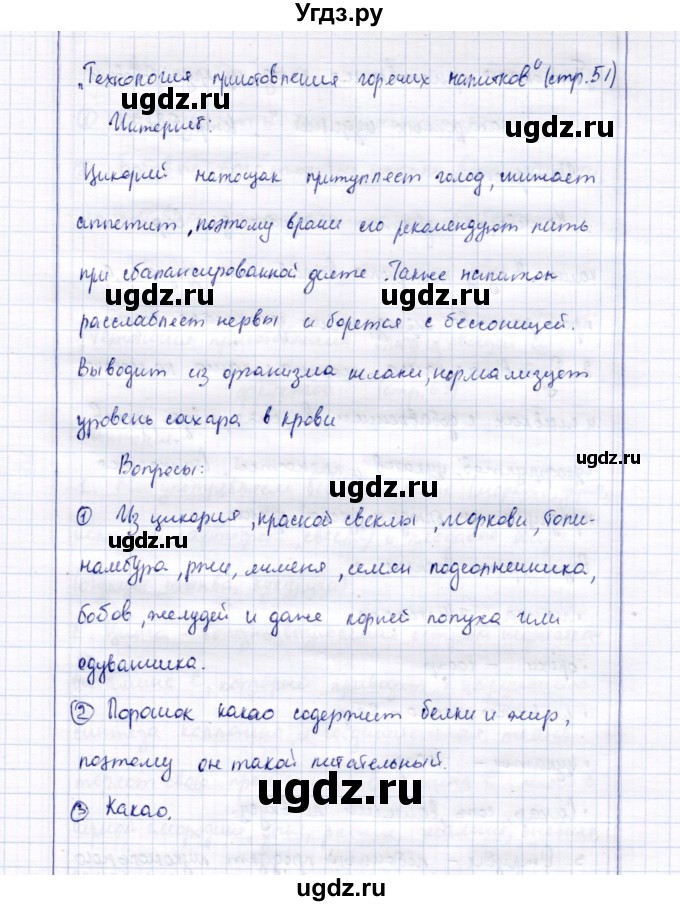 Угдз.ру
„Технология приготовления горячих напитков" (стр. 51)
ugdz.ru
ugdz.ru
Интернет:
Цикорий натощак притупляет голод, снижает
аппетит, поэтому врачи его рекомендуют пить
при сбалансированной диете. Также напиток
ugdz.ru
ugdz.ru
расслабляет нервы и борется с бессоницей.
Выводит из организма шлаки, нормализует
уровень сахара в крови
Вопросы:
ugdz.ru
ugdz.ru
① Из цикория, красной свеклы, моркови, топи-
ugdz.ru
намбура, ржи, ячменя, семян подсолнечника,
бобов, желудей и даже корней лопуха или
одуванчика.
② Порошок какао содержит белки и жир,
поэтому он такой питательный.
ugdz.ru
③ Какао.
ugdz.ru